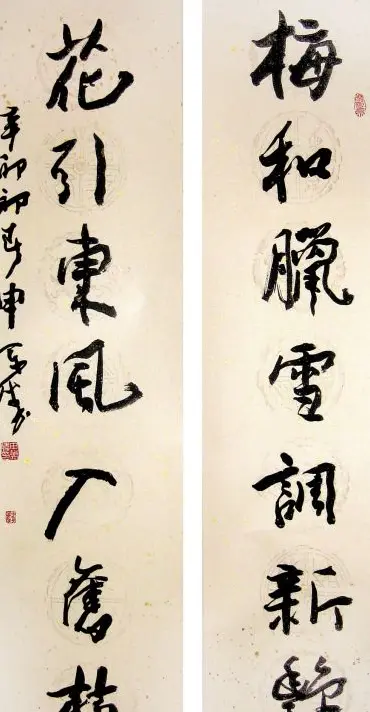 梅和臘雪調新
花引東風入舊枝
辛卯初